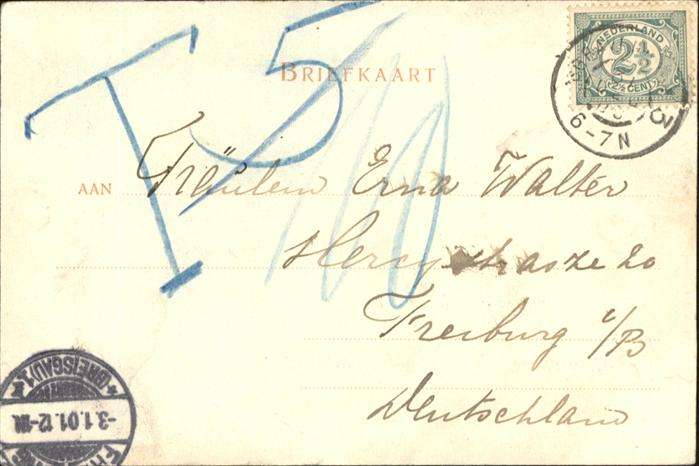 T 5
10
BRIEFKAART
NEDERLAND
2½
2½ CENT
6-7N
AAN Fräulein Erna Walter
strasze 20
Freiburg i/B
Deutschland
(BREISGAU) 1.
-3.1.01.12-